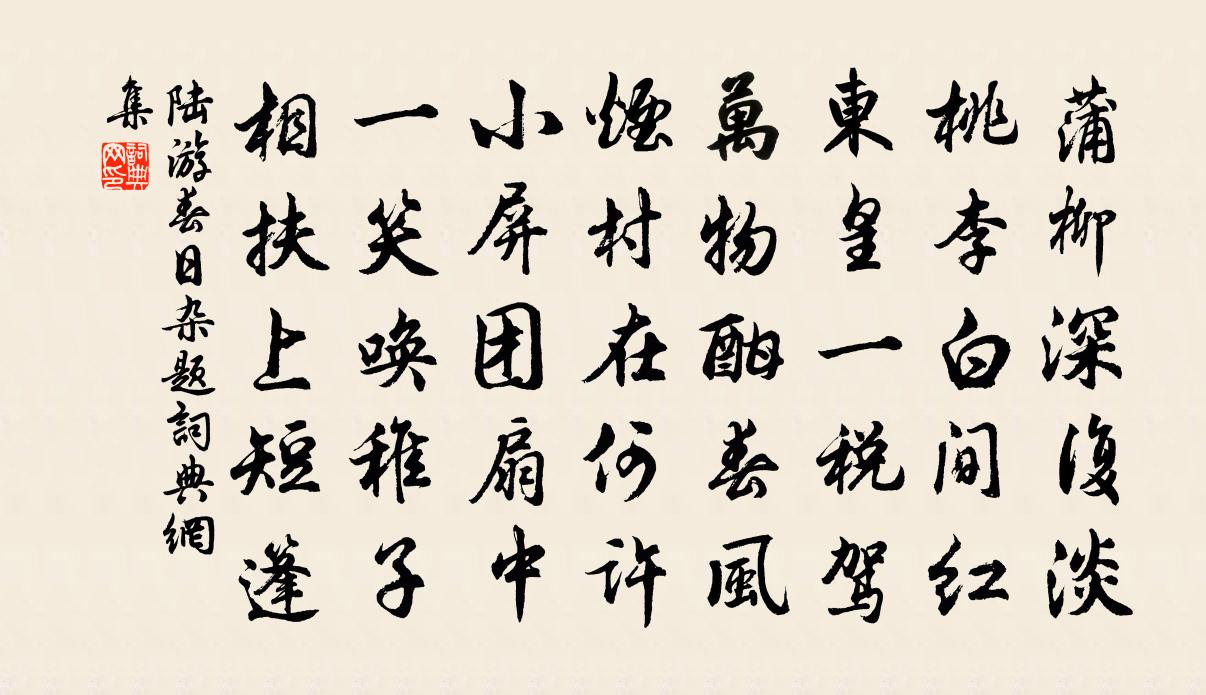 蒲柳深復淡
桃李白間紅
東皇一税驾
萬物酣春風
煙村在何許
小屏团扇中
一笑唤稚子
相扶上短篷
陆游春日杂题詞典網
集
詞典网印